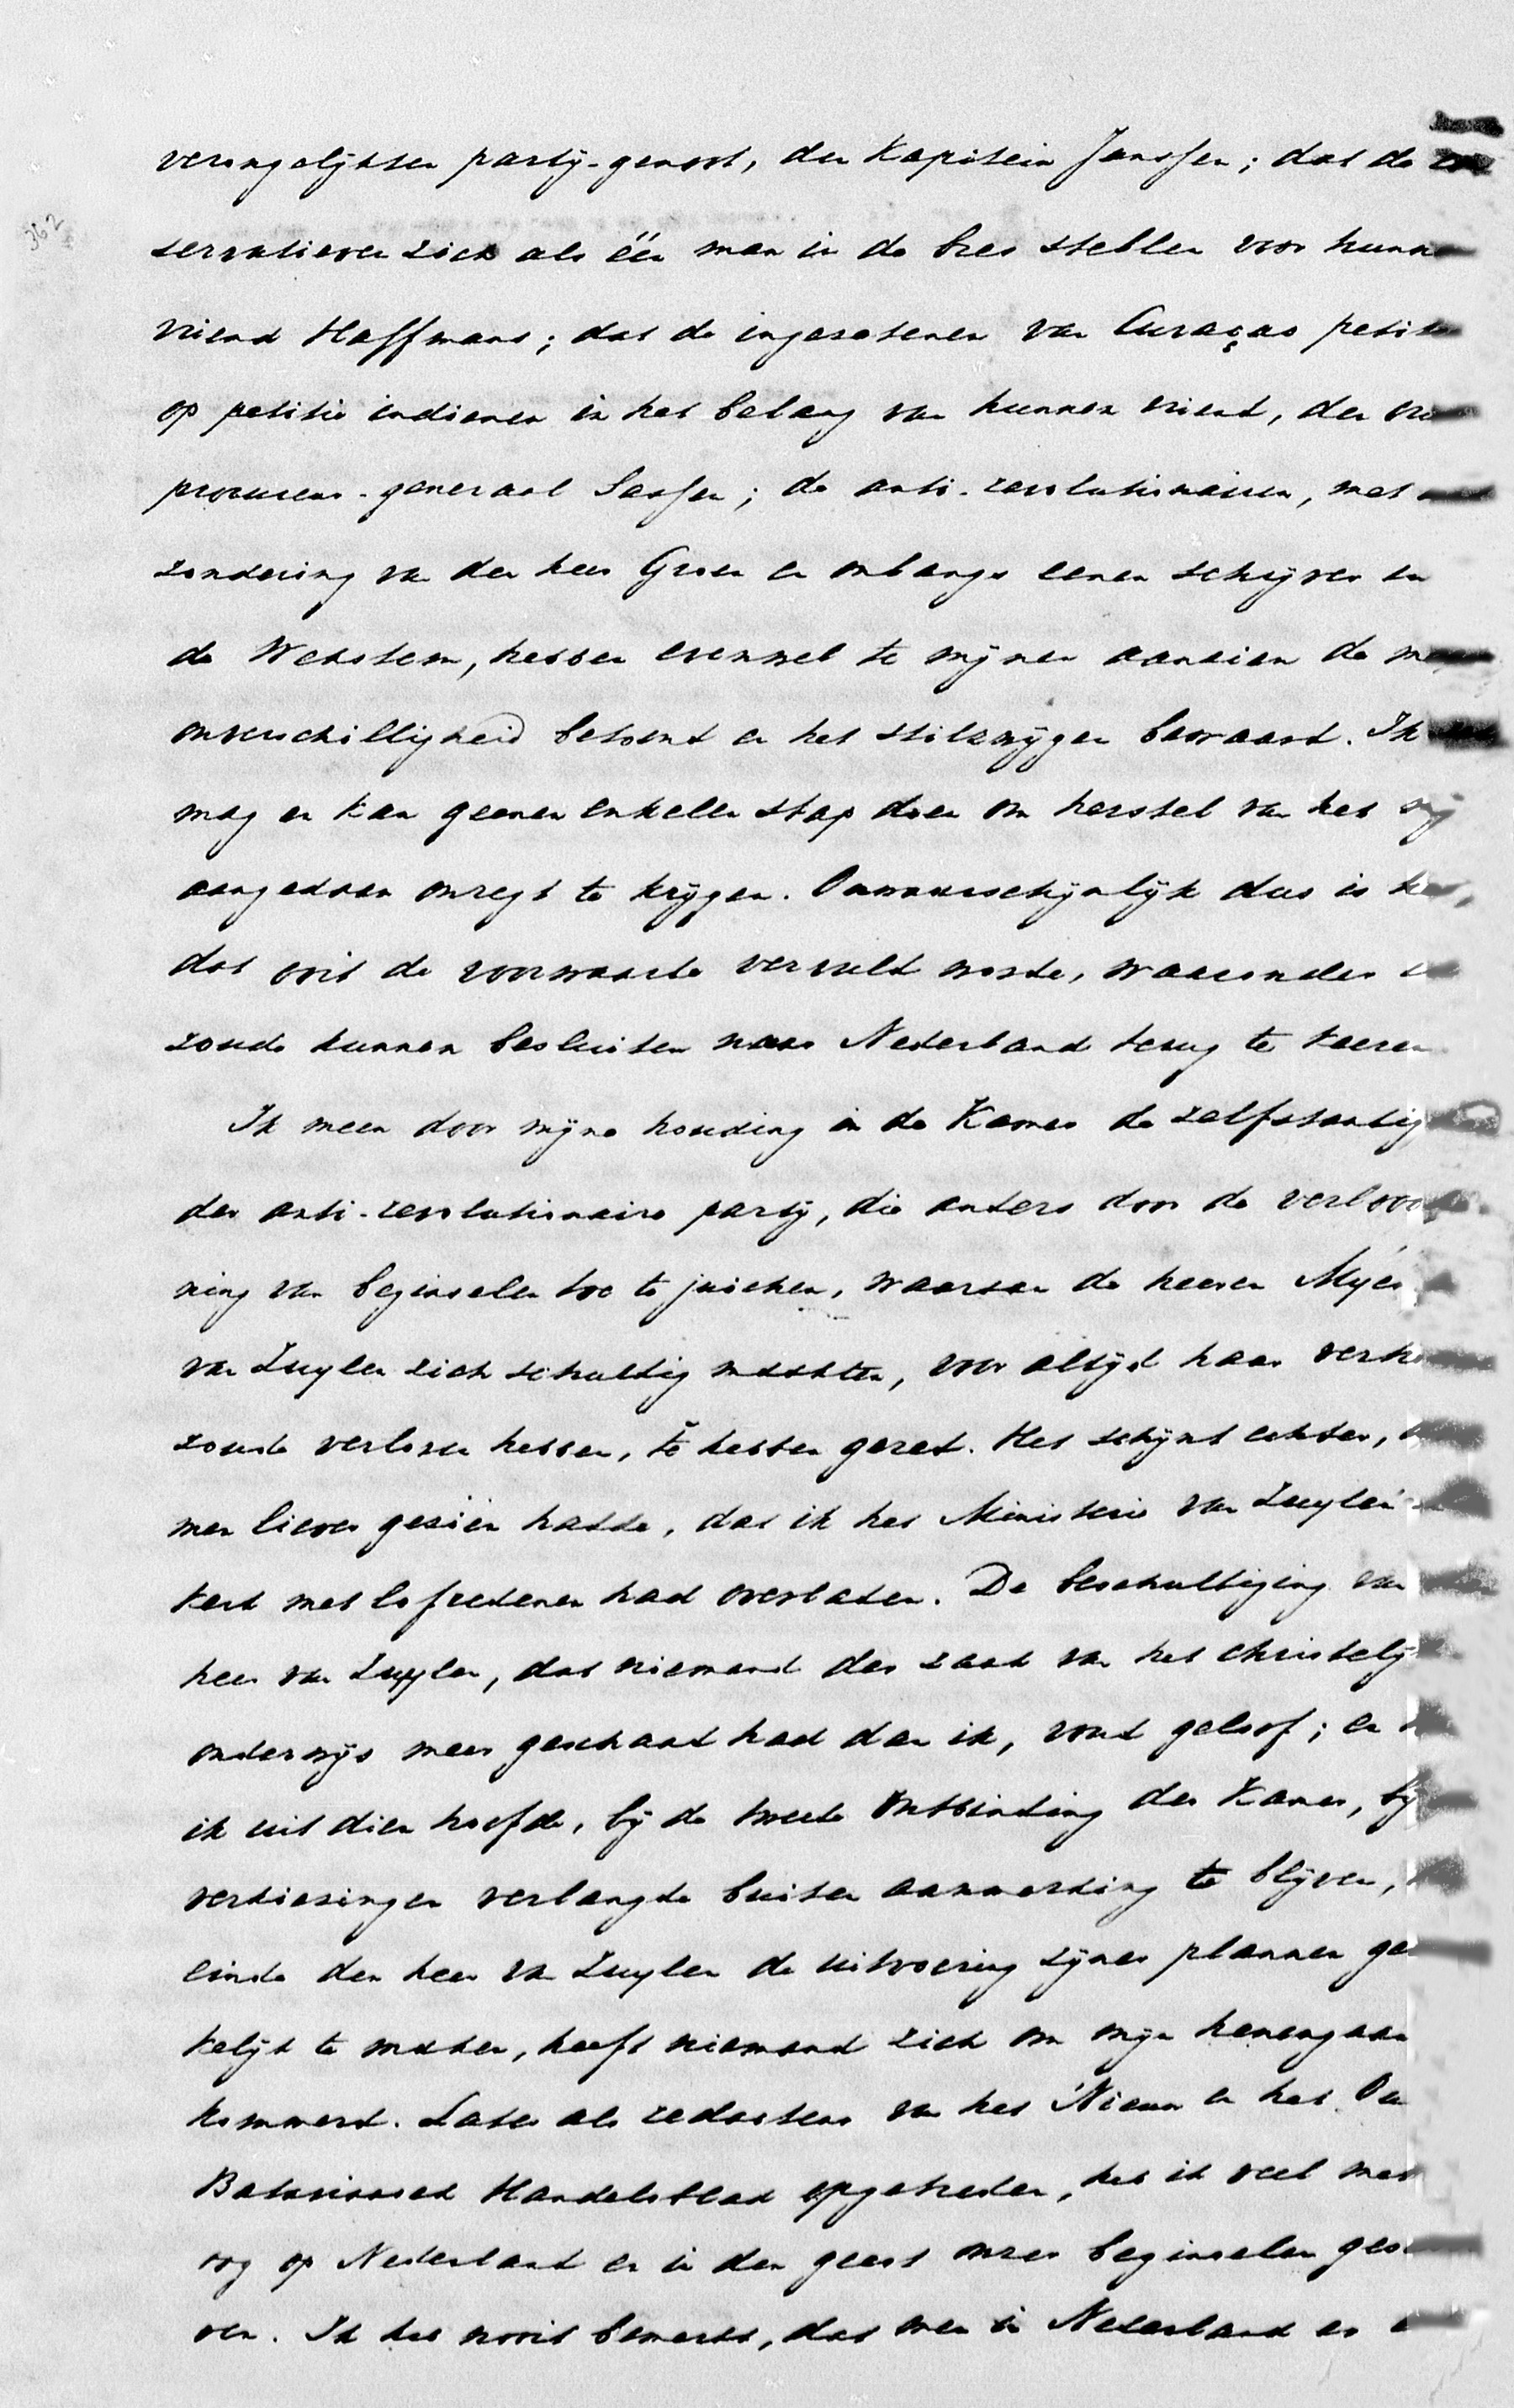 362
verongelijkten partij-genoot, den Kapitein Janssen; dat de con
servatieven zich als één man in de bres stellen voor hunne
vriend Haffmans; dat de ingezetenen van Curaçao petitie
op petitie indienen in het belang van hunnen vriend, den
procureur-generaal Sassen; de anti-revolutionairen, met
zondering van den heer Groen en onlangs eenen schrijver in
de Wekstem, hebben evenwel te mijnen aanzien de
onverschilligheid betoond en het stilzwijgen bewaard. Ik
mag en kan geenen enkelen stap doen om herstel van het mij
aangedaan onregt te krijgen. Onwaarschijnlijk dus is het,
dat ooit de voorwaarde vervuld worde, waaronder ik
zoude kunnen besluiten naar Nederland terug te keeren
Ik meen door mijne houding in de Kamer de zelfstandig
der anti-revolutionaire partij, die anders door de verlooche
ning van beginselen toe te juichen, waaraan de heeren Mijer
van Zuylen zich schuldig maakten, voor altijd haar
zoude verloren hebben, te hebben gered. Het schijnt echter,
men liever gezien hadde, dat ik het Ministerie van Zuylen
kerk met lofredenen had overladen. De beschuldiging van
heer van Zuylen, dat niemand der zaak van het christelij
onderwijs meer geschaad had dan ik, vond geloof; en
ik uit dien hoofde, bij de tweede Ontbinding der Kamer, bij
verkiezingen verlangde buiten aanmerking te blijven,
einde den heer van Zuylen de uitvoering zijner plannen ge
kelijk te maken, heeft niemand zich om mijn henengaan
kommerd. Later als redacteur van het Nieuw en het Oud
Bataviaasch Handelsblad opgetreden, heb ik veel met
oog op Nederland en in den geest onzer beginselen ges
ven. Ik heb nooit bemerkt, dat men in Nederland er